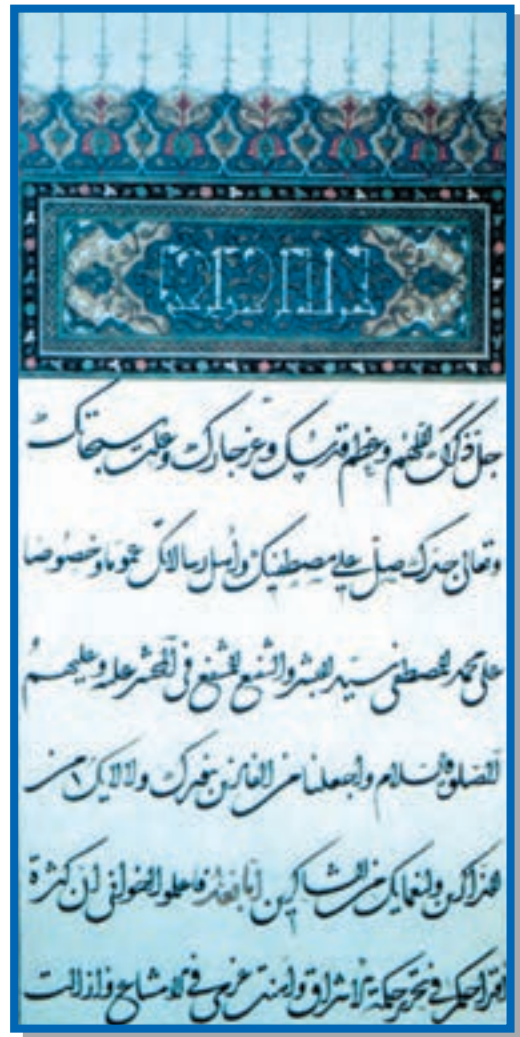 جل ذكرك اللهم وعظم قدسك وعز جارك وعلت سبحاتك
وتعالى جدك صل على مصطفيك وأهل رسالاتك عموما وخصوصا
على محمد المصطفى سيد البشر والشفيع المشفع فى المحشر عليه وعليهم
الصلوة والسلام واجعلنا من الفائزين بنورك ولآلائك من
الذاكرين ولنعمائك من الشاكرين أما بعد فاعلموا اخوانى أن كثرة
اقتراحكم فى تحرير حكمة الاشراق واهنت عزمى فى الامتناع وازالت